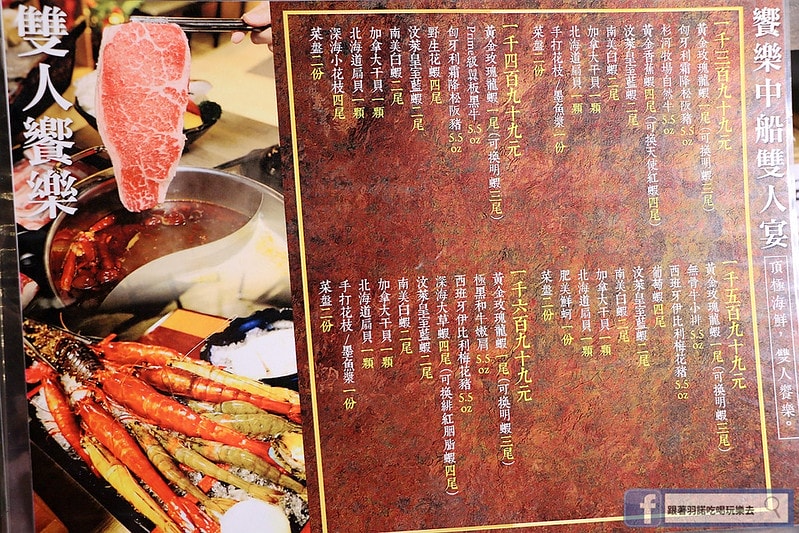 饗樂中船雙人宴
頂極海鮮，雙人饗樂。
一千三百九十九元
黃金玫瑰龍蝦一尾(可換明蝦三尾)
匈牙利霜降松阪豬5.5oz
杉河牧場自然牛5.5oz
黃金香蕉蝦四尾(可換天使紅蝦四尾)
汶萊皇室藍蝦二尾
南美白蝦二尾
加拿大干貝一顆
北海道扇貝一顆
手打花枝/墨魚漿一份
菜盤二份
一千四百九十九元
黃金玫瑰龍蝦一尾(可換明蝦三尾)
Prime級翼板黑牛5.5oz
匈牙利霜降松阪豬5.5oz
野生花蝦四尾
汶萊皇室藍蝦二尾
南美白蝦二尾
加拿大干貝一顆
北海道扇貝一顆
深海小花枝四尾
菜盤二份
一千五百九十九元
黃金玫瑰龍蝦一尾(可換明蝦三尾)
無骨牛小排5.5oz
西班牙伊比利梅花豬5.5oz
葡萄蝦四尾
汶萊皇室藍蝦二尾
南美白蝦二尾
加拿大干貝一顆
北海道扇貝一顆
肥美鮮蚵一份
菜盤二份
一千六百九十九元
黃金玫瑰龍蝦一尾(可換明蝦三尾)
極黑和牛嫩肩5.5oz
西班牙伊比利梅花豬5.5oz
深海大草蝦四尾(可換緋紅胭脂蝦四尾)
汶萊皇室藍蝦二尾
南美白蝦二尾
加拿大干貝一顆
北海道扇貝一顆
手打花枝/墨魚漿一份
菜盤二份
雙人饗樂
f 跟著羽諾吃喝玩樂去